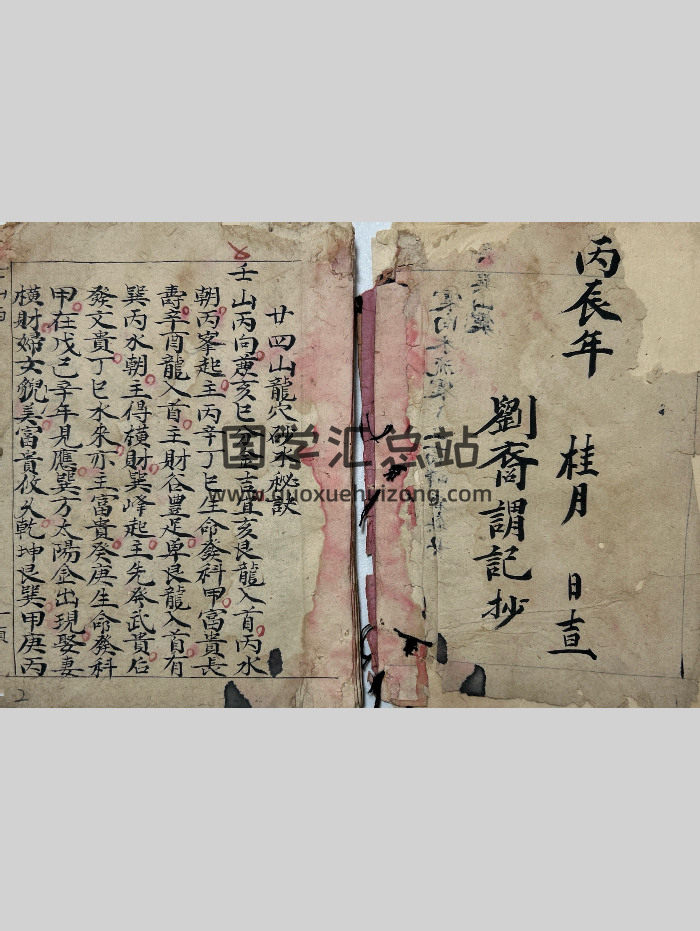 丙辰年
桂月
日
劉裔謂記抄
廿四山龍穴砂水秘訣
壬山丙向兼亥巳分金吉宜亥艮龍入首丙水
朝丙峯起主丙辛丁巳生命發科甲富貴長
壽辛酉龍入首主財谷豊足单艮龍入首有
巽丙水朝主得橫財巽峰起主先發武貴后
發文貴丁巳水來亦主富貴癸庚生命發科
甲在戊己辛年見應巽方太陽金出現娶妻
橫財婦女貌美富貴攸久乾坤艮巽甲庚丙
2
国学汇总站
www.guoxuehuizong.com